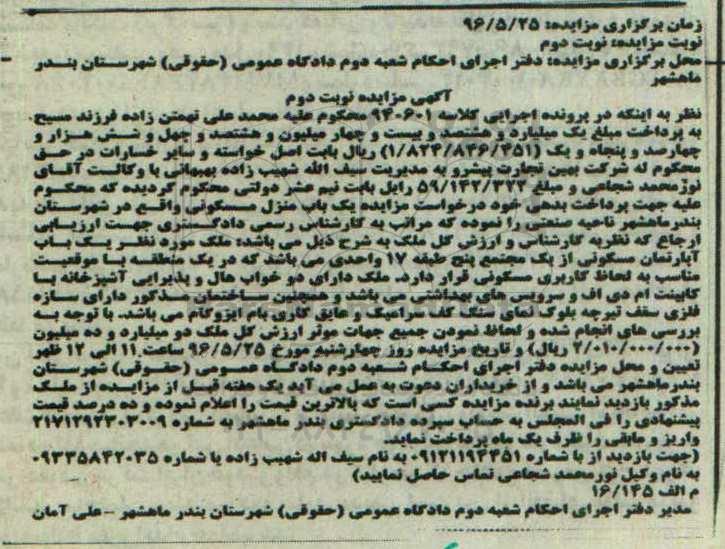 زمان برگزاری مزایده: ۹۶/۵/۲۵
نوبت مزایده: نوبت دوم
محل برگزاری مزایده: دفتر اجرای احکام شعبه دوم دادگاه عمومی (حقوقی) شهرستان بندر
ماهشهر
آگهی مزایده نوبت دوم
نظر به اینکه در پرونده اجرایی کلاسه ۹۴۰۶۰۱ محکوم علیه محمد علی تهمتن زاده فرزند مسیح،
به پرداخت مبلغ یک میلیارد و هشتصد و بیست و چهار میلیون و هشتصد و چهل و شش هزار و
چهارصد و پنجاه و یک (۱/۸۲۴/۸۴۶/۴۵۱) ریال بابت اصل خواسته و سایر خسارات در حق
محکوم له شرکت بهین تجارت پیشرو به مدیریت سیف الله شهیب زاده بهبهانی با وکالت آقای
نورمحمد شجاعی و مبلغ ۵۹/۱۴۲/۳۲۲ رایل بابت نیم عشر دولتی محکوم گردیده که محکوم
علیه جهت پرداخت بدهی خود درخواست مزایده یک باب منزل مسکونی واقع در شهرستان
بندرماهشهر ناحیه صنعتی را نموده که مراتب به کارشناس رسمی دادگستری جهت ارزیابی
ارجاع که نظریه کارشناس و ارزش کل ملک به شرح ذیل می باشد: ملک مورد نظر یک باب
آپارتمان مسکونی از یک مجتمع پنج طبقه ۱۷ واحدی می باشد که در یک منطقه با موقعیت
مناسب به لحاظ کاربری مسکونی قرار دارد. ملک دارای دو خواب هال و پذیرایی آشپزخانه با
کابینت ام دی اف و سرویس های بهداشتی می باشد و همچنین ساختمان مذکور دارای سازه
فلزی سقف تیرچه بلوک نمای سنگ کف سرامیک و عایق کاری بام ایزوگام می باشد. با توجه به
بررسی های انجام شده و لحاظ نمودن جمیع جهات موثر ارزش کل ملک دو میلیارد و ده میلیون
(۲/۰۱۰/۰۰۰/۰۰۰ ریال) و تاریخ مزایده روز چهارشنبه مورخ ۹۶/۵/۲۵ ساعت ۱۱ الی ۱۲ ظهر
تعیین و محل مزایده دفتر اجرای احکام شعبه دوم دادگاه عمومی (حقوقی) شهرستان
بندرماهشهر می باشد و از خریداران دعوت به عمل می آید یک هفته قبل از مزایده از ملک
مذکور بازدید نمایند برنده مزایده کسی است که بالاترین قیمت را اعلام نموده و ده درصد قیمت
پیشنهادی را فی المجلس به حساب سپرده دادگستری بندر ماهشهر به شماره ۲۱۷۱۲۹۲۳۰۳۰۰۹
واریز و مابقی را ظرف یک ماه پرداخت نمایند.
(جهت بازدید از با شماره ۰۹۱۲۱۱۹۴۴۵۱ به نام سیف اله شهیب زاده یا شماره ۰۹۳۳۵۸۴۲۰۳۵
به نام وکیل نورمحمد شجاعی تماس حاصل نمایید)
م الف ۱۶/۱۴۵
مدیر دفتر اجرای احکام شعبه دوم دادگاه عمومی (حقوقی) شهرستان بندر ماهشهر -علی آمان